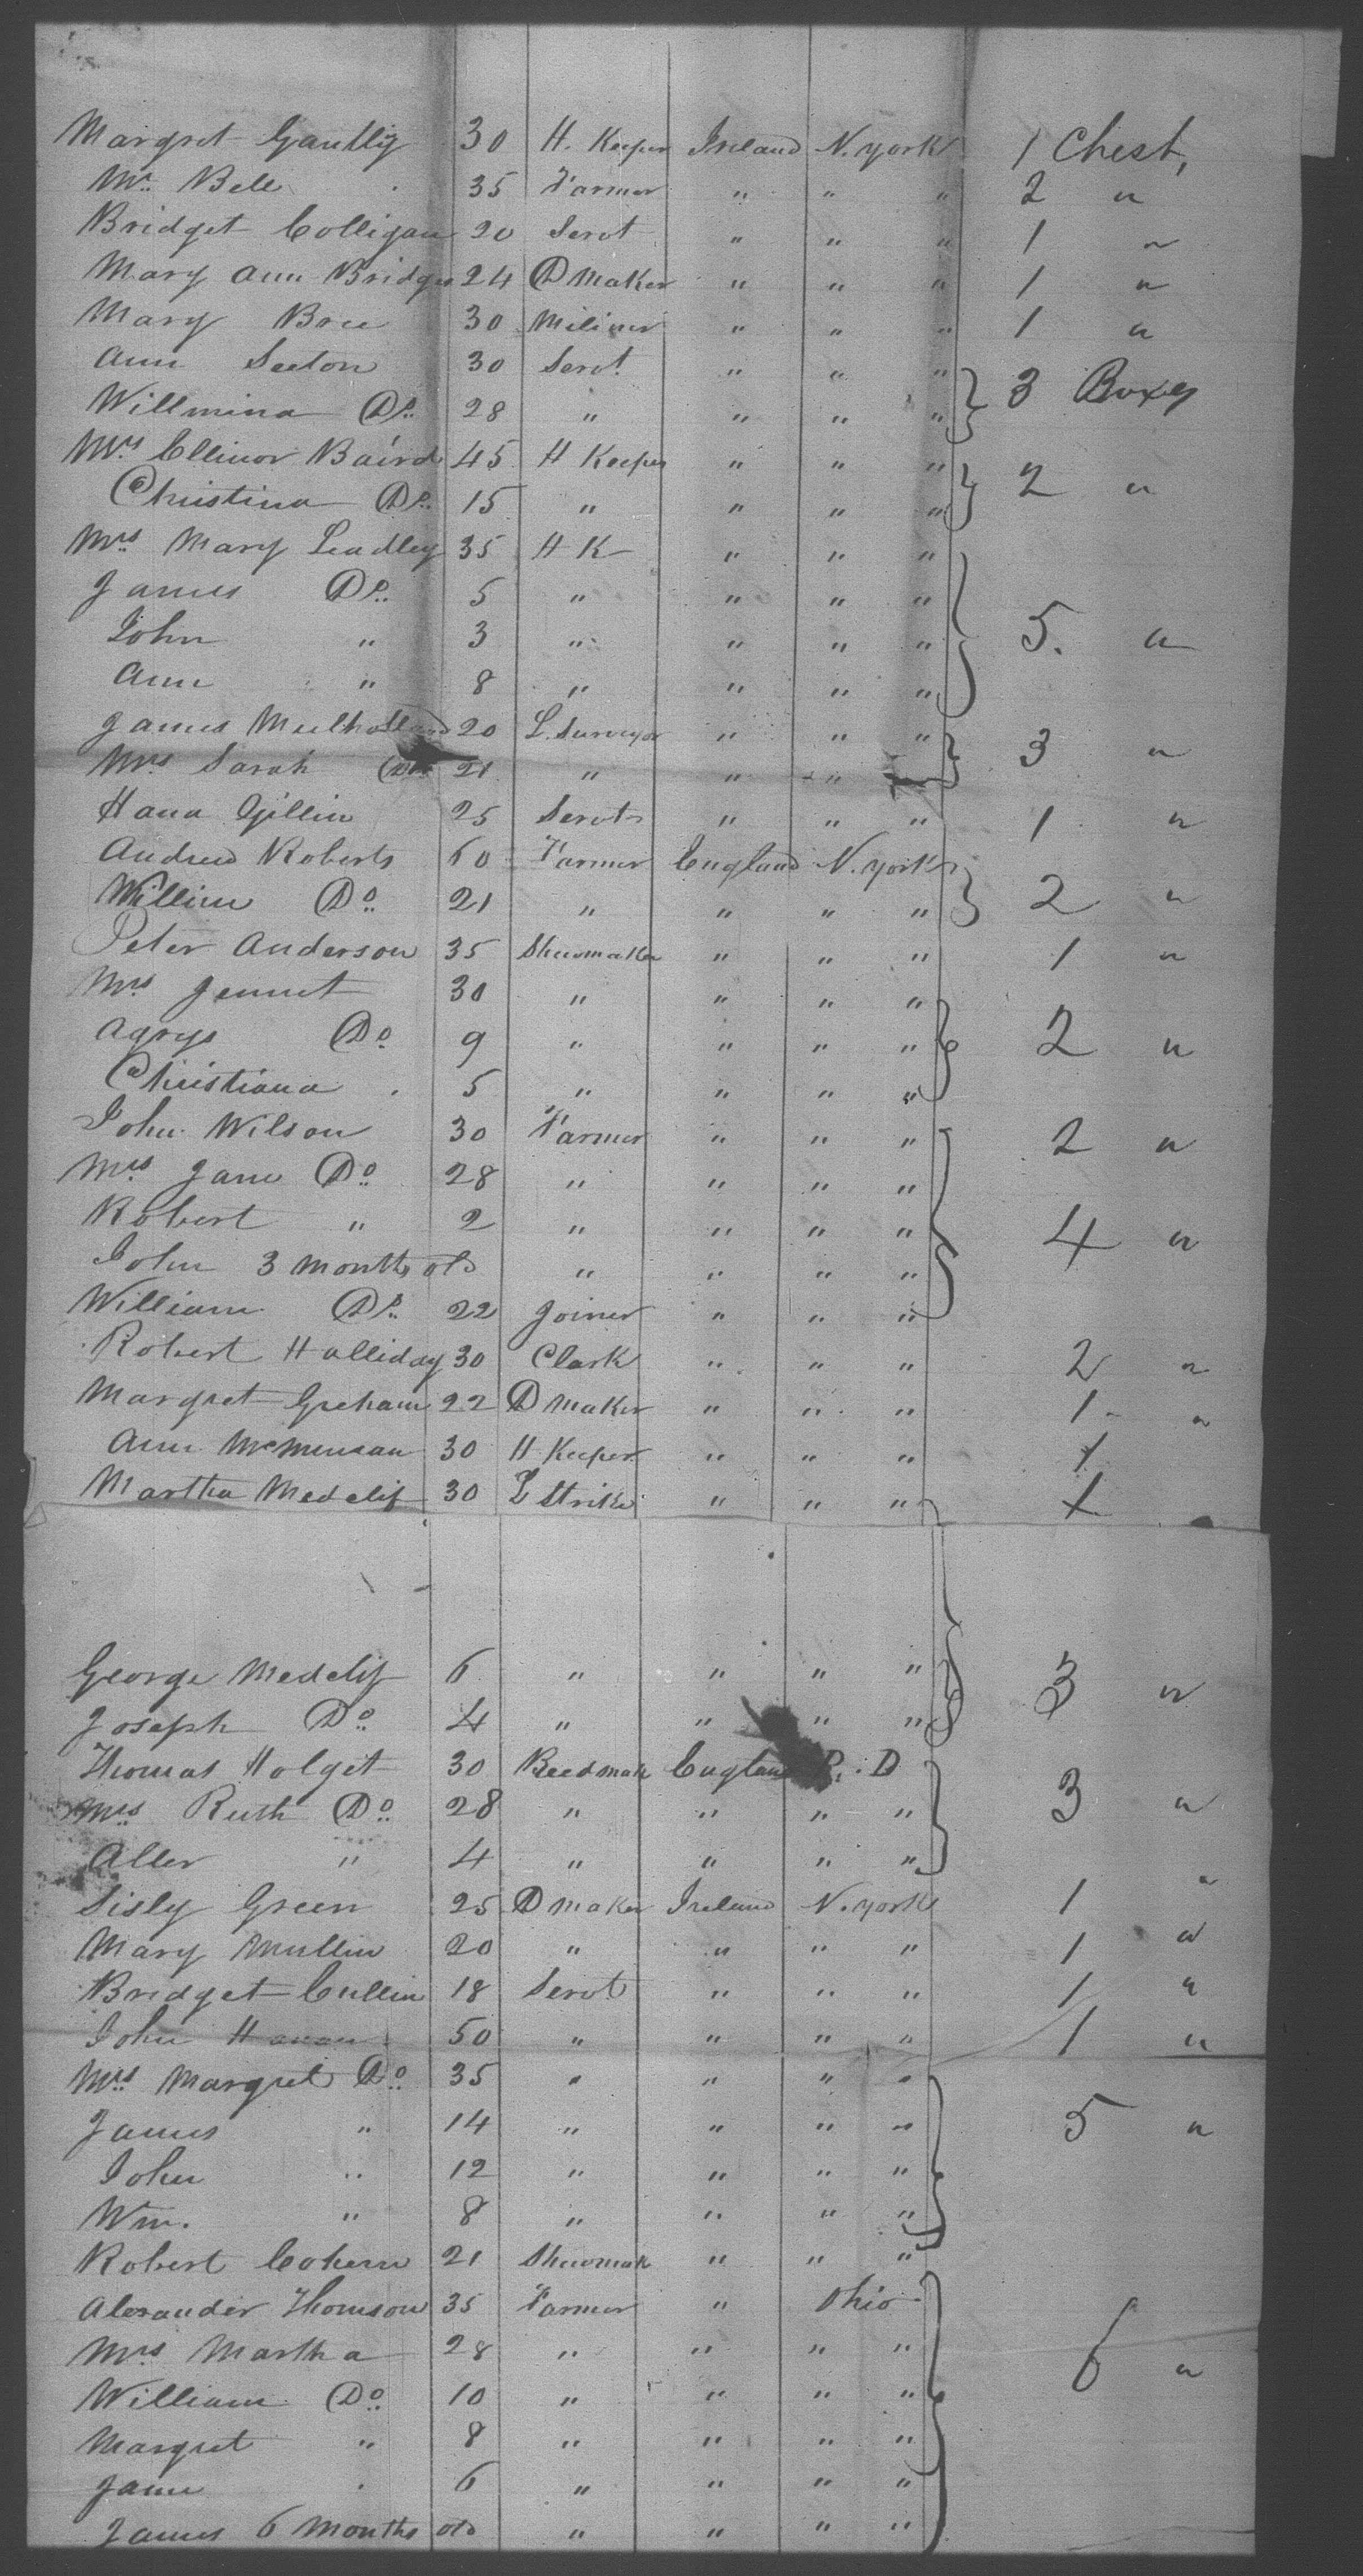 Margret Gantliy 30 H. Keeper Ireland N. york 1 Chest,
Mr. Bell 35 Farmer " " " 2 "
Bridget Colligan 20 Servt " " " 1 "
Mary Ann Bridges 24 D maker " " " 1 "
Mary Bree 30 Miliner " " " 1 "
Ann Seeton 30 Servt " " " 3 Boxes
Willmina Do. 28 " " " "
Mrs. Ellinor Baird 45 H Keeper " " " 2 "
Christina Do. 15 " " " "
Mrs Mary Leadley 35 H K " " "
James Do. 5 " " " " 5. "
John " 3 " " " "
Ann " 8 " " " "
James Mulholland 20 L. Surveyor " " " 3 "
Mrs. Sarah Do 21 " " "
Hana Gillin 25 Servt " " " 1 "
Andrew Roberts 60 Farmer England N. york
Willim Do. 21 " " " " 2 "
Peter Anderson 35 Shewmaker " " " 1 "
Mrs Jennet 30 " " " "
Agnys Do 9 " " " " 2 "
Christiana 5 " " " "
John Wilson 30 Farmer " " " 2 "
Mrs Jane Do. 28 " " " "
Robert " 2 " " " " 4 "
John 3 months old " " " "
William Do. 22 Joiner " " "
Robert Halliday 30 Clark " " " 2 "
Margret Greham 22 D maker " " " 1 "
Ann McMenaan 30 H Keeper " " " 1
Martha Medclif 30 " " " 1
George Medclif 6 " " " " 3 "
Joseph Do. 4 " " " "
Thomas Holget 30 Reedmak England P. D
Mrs Ruth Do. 28 " " " " 3 "
Aller " 4 " " " "
Sisly Green 25 D maker Ireland N. york 1 "
Mary Mullin 20 " " " " 1 "
Bridget Cullin 18 Servt " " " 1 "
John Hanan 50 " " " " 1 "
Mrs Margret Do. 35 " " " "
James " 14 " " " " 5 "
John " 12 " " " "
Wm. " 8 " " " "
Robert Cohern 21 Shewmak " " "
Alexander Thomson 35 Farmer " Ohio
Mrs Martha 28 " " " " 6 "
William Do. 10 " " " "
Margret " 8 " " " "
Jane 6 " " " "
James 6 Months old " " " "